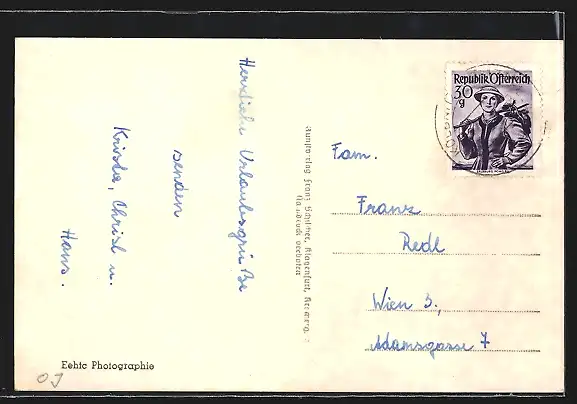 Herzliche Urlaubsgrüße
senden
Krista, Christl u.
Hans.
Echte Photographie
Kunstverlag Franz Schilcher, Klagenfurt,
Nachdruck verboten
Republik Österreich
30
g
Fam.
Franz
Redl
Wien 3.,
Adamsgasse 7